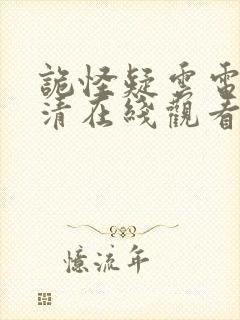 詭怪疑雲電
清在綫觀看
憶流年